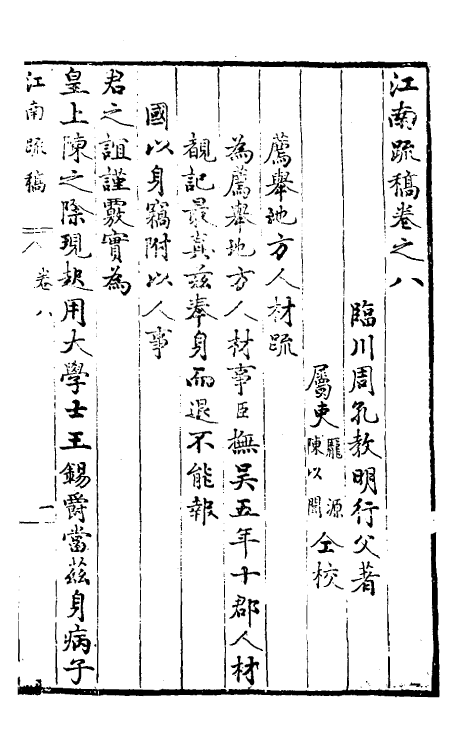 江南疏稿卷之八
臨川周孔教明行父著
屬吏龎源陳以聞仝校
薦舉地方人材疏
為薦舉地方人材事臣撫吴五年十郡人材
覩記最真兹奉身而退不能報
國以身竊附以人事
君之誼謹覈實為
皇上陳之除現起用大學士王錫爵當兹身病子
江南疏稿 卷八 一